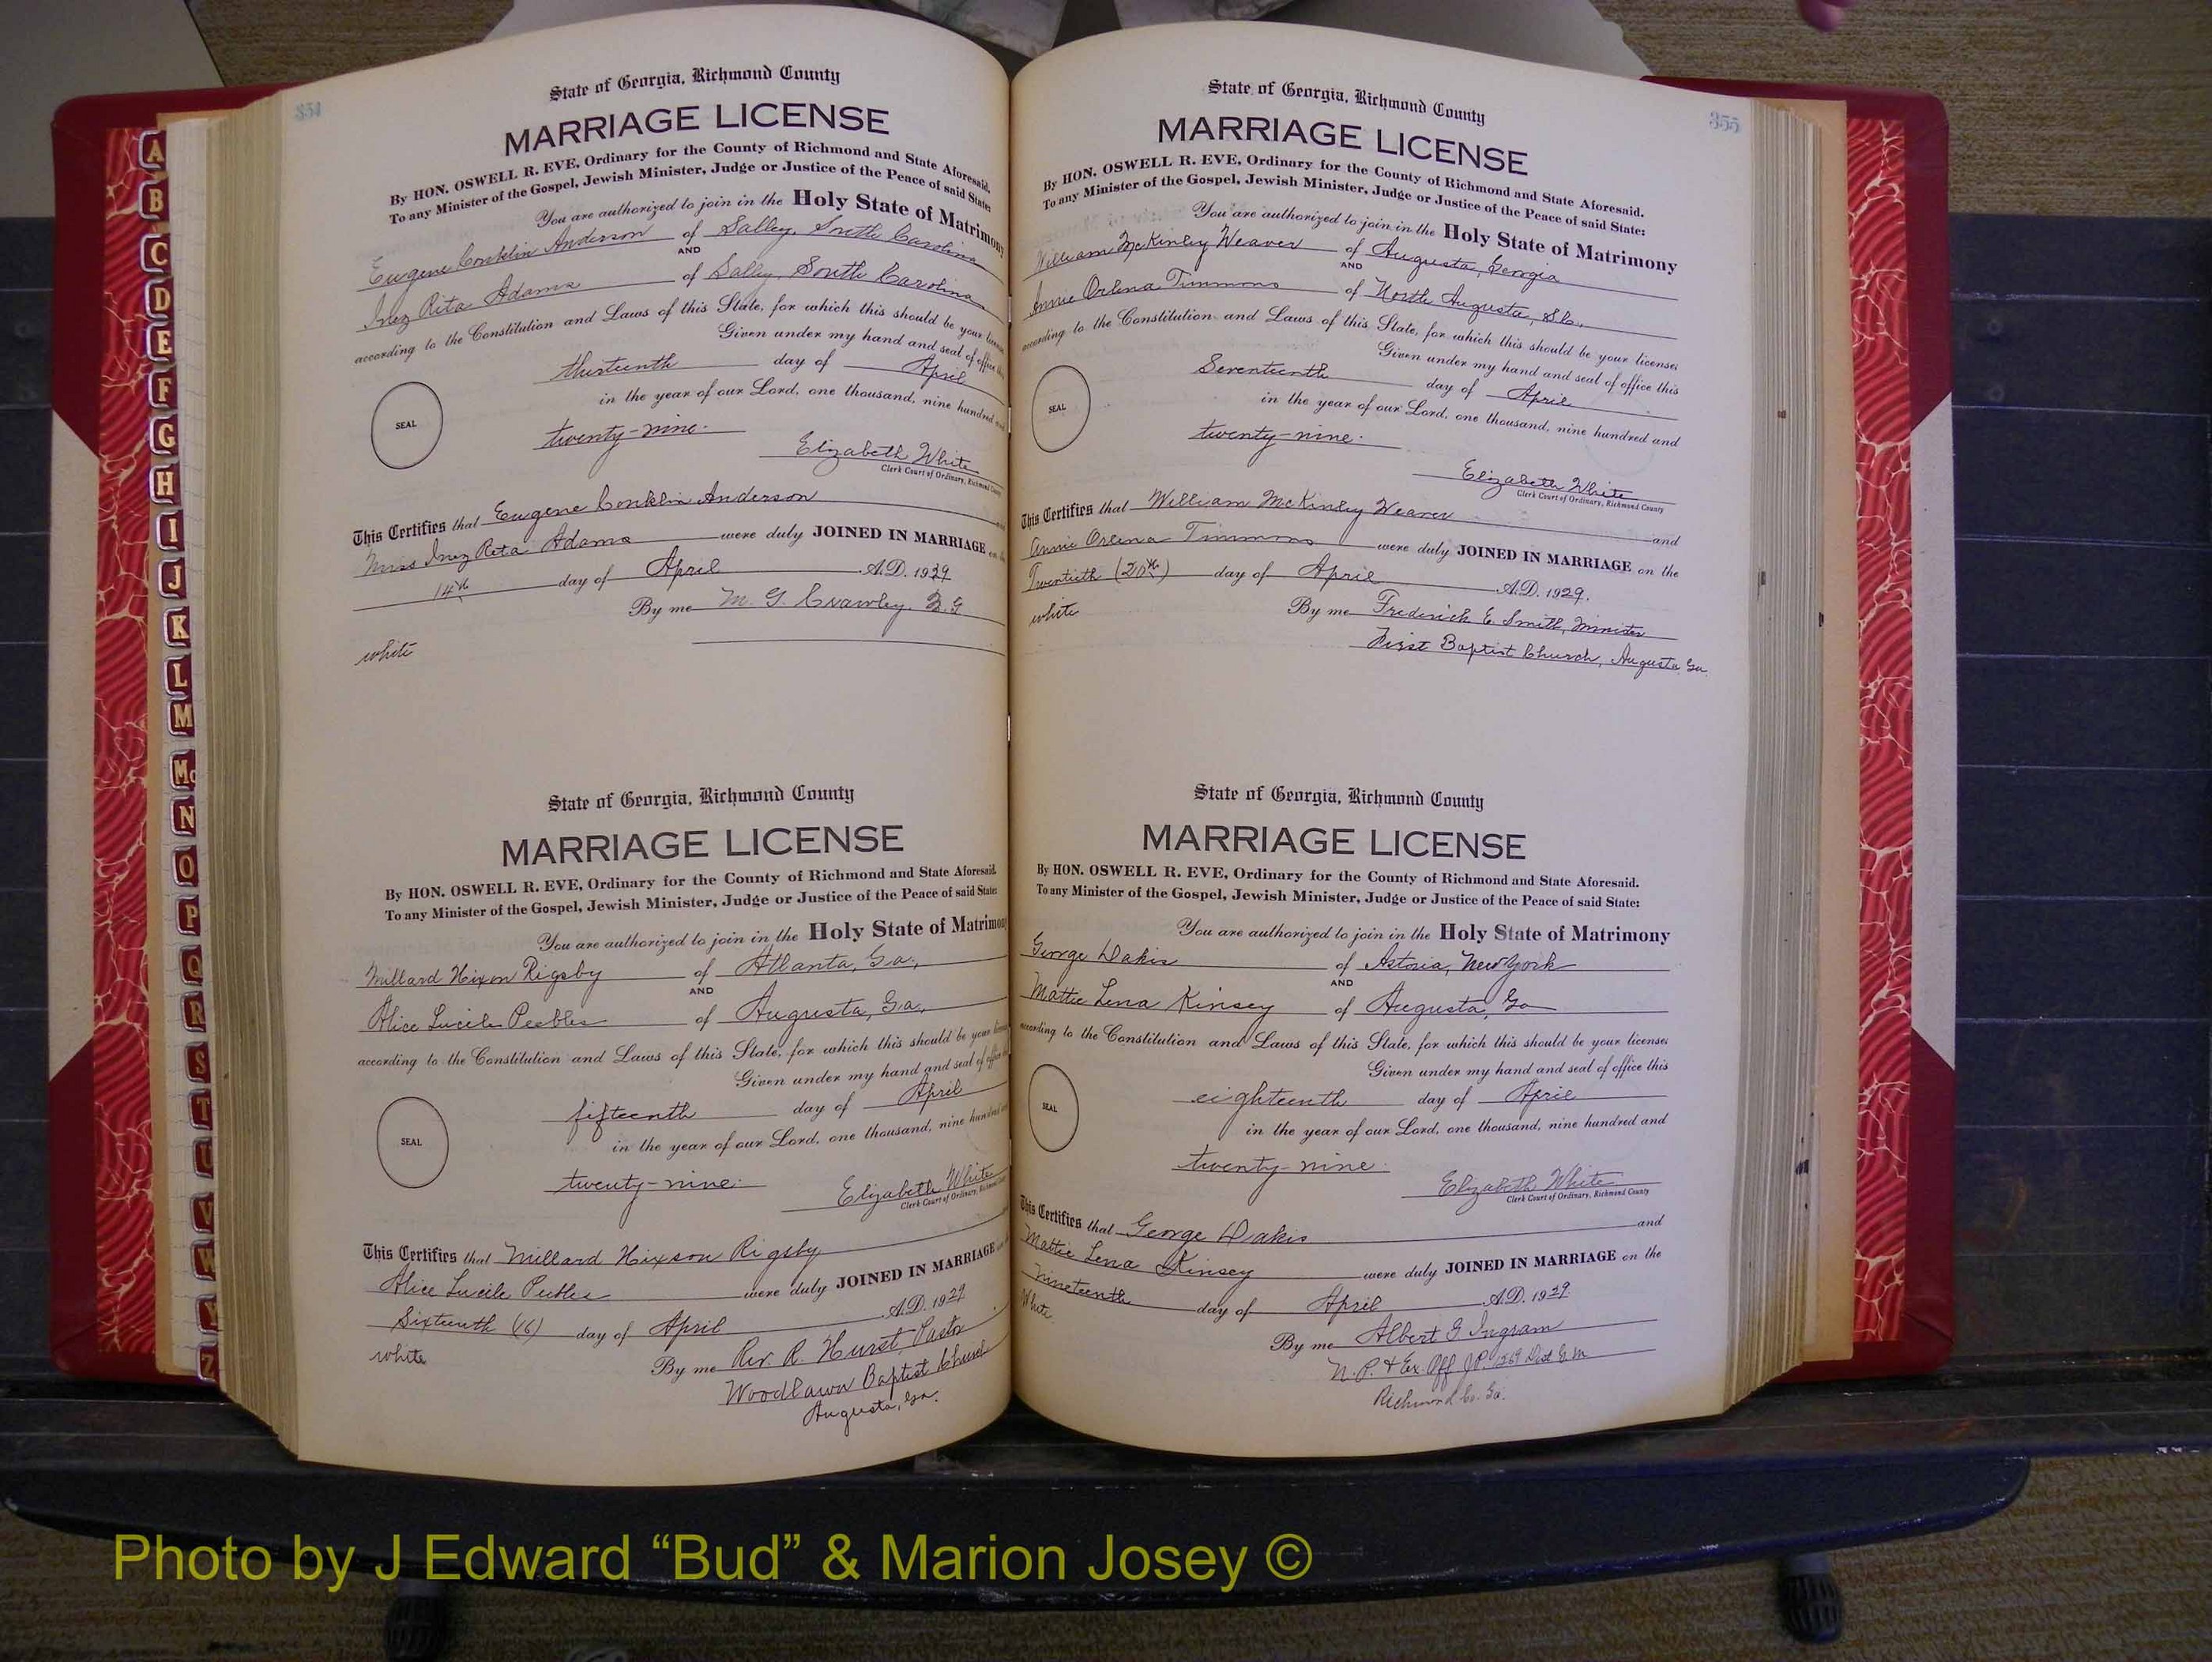 354
State of Georgia, Richmond County
MARRIAGE LICENSE
By HON. OSWELL R. EVE, Ordinary for the County of Richmond and State Aforesaid.
To any Minister of the Gospel, Jewish Minister, Judge or Justice of the Peace of said State:
You are authorized to join in the Holy State of Matrimony
Eugene Conklin Anderson of Salley, South Carolina
AND
Inez Rita Adams of Sally, South Carolina
according to the Constitution and Laws of this State, for which this should be your license
Given under my hand and seal of office this
thirteenth day of April
in the year of our Lord, one thousand, nine hundred and
SEAL
twenty-nine.
Elizabeth White
Clerk Court of Ordinary, Richmond County
This Certifies that Eugene Conklin Anderson
Miss Inez Rita Adams were duly JOINED IN MARRIAGE on the
14th day of April A.D. 1929
By me M. G. Crawley,
white
State of Georgia, Richmond County
MARRIAGE LICENSE
By HON. OSWELL R. EVE, Ordinary for the County of Richmond and State Aforesaid.
To any Minister of the Gospel, Jewish Minister, Judge or Justice of the Peace of said State:
You are authorized to join in the Holy State of Matrimony
Millard Hixon Rigsby of Atlanta, Ga.,
AND
Alice Lucile Peebles of Augusta, Ga.,
according to the Constitution and Laws of this State, for which this should be your license
Given under my hand and seal of office
fifteenth day of April
in the year of our Lord, one thousand, nine hundred and
SEAL
twenty-nine.
Elizabeth White
Clerk Court of Ordinary, Richmond County
This Certifies that Millard Hixson Rigsby
Alice Lucile Peebles were duly JOINED IN MARRIAGE
Sixteenth (16) day of April A.D. 1929
white
By me Rev. R. Hurst, Pastor
Woodlawn Baptist Church
Augusta, Ga.
355
State of Georgia, Richmond County
MARRIAGE LICENSE
By HON. OSWELL R. EVE, Ordinary for the County of Richmond and State Aforesaid.
To any Minister of the Gospel, Jewish Minister, Judge or Justice of the Peace of said State:
You are authorized to join in the Holy State of Matrimony
William McKinley Weaver of Augusta, Georgia
AND
Annie Orlena Timmons of North Augusta, S.C.,
according to the Constitution and Laws of this State, for which this should be your licenses
Given under my hand and seal of office this
Seventeenth day of April
in the year of our Lord, one thousand, nine hundred and
SEAL
twenty-nine.
Elizabeth White
Clerk Court of Ordinary, Richmond County
This Certifies that William McKinley Weaver and
Annie Orlena Timmons were duly JOINED IN MARRIAGE on the
Twentieth (20th) day of April A.D. 1929.
white
By me Frederick E. Smith, Minister
First Baptist Church, Augusta, Ga.
State of Georgia, Richmond County
MARRIAGE LICENSE
By HON. OSWELL R. EVE, Ordinary for the County of Richmond and State Aforesaid.
To any Minister of the Gospel, Jewish Minister, Judge or Justice of the Peace of said State:
You are authorized to join in the Holy State of Matrimony
George Dakis of Astoria, New York
AND
Mattie Lena Kinsey of Augusta, Ga
according to the Constitution and Laws of this State, for which this should be your licenses
Given under my hand and seal of office this
eighteenth day of April
in the year of our Lord, one thousand, nine hundred and
SEAL
twenty-nine.
Elizabeth White
Clerk Court of Ordinary, Richmond County
This Certifies that George Dakis and
Mattie Lena Kinsey were duly JOINED IN MARRIAGE on the
nineteenth day of April A.D. 1929.
White.
By me Albert G Ingram
N. P. & Ex. Off J.P. 1269 Dist G.M
Richmond Co. Ga.
A
B
C
D
E
F
G
H
I
J
K
L
M
Mc
N
O
P
Q
R
S
T
U
V
W
Y
Z
Photo by J Edward “Bud” & Marion Josey ©